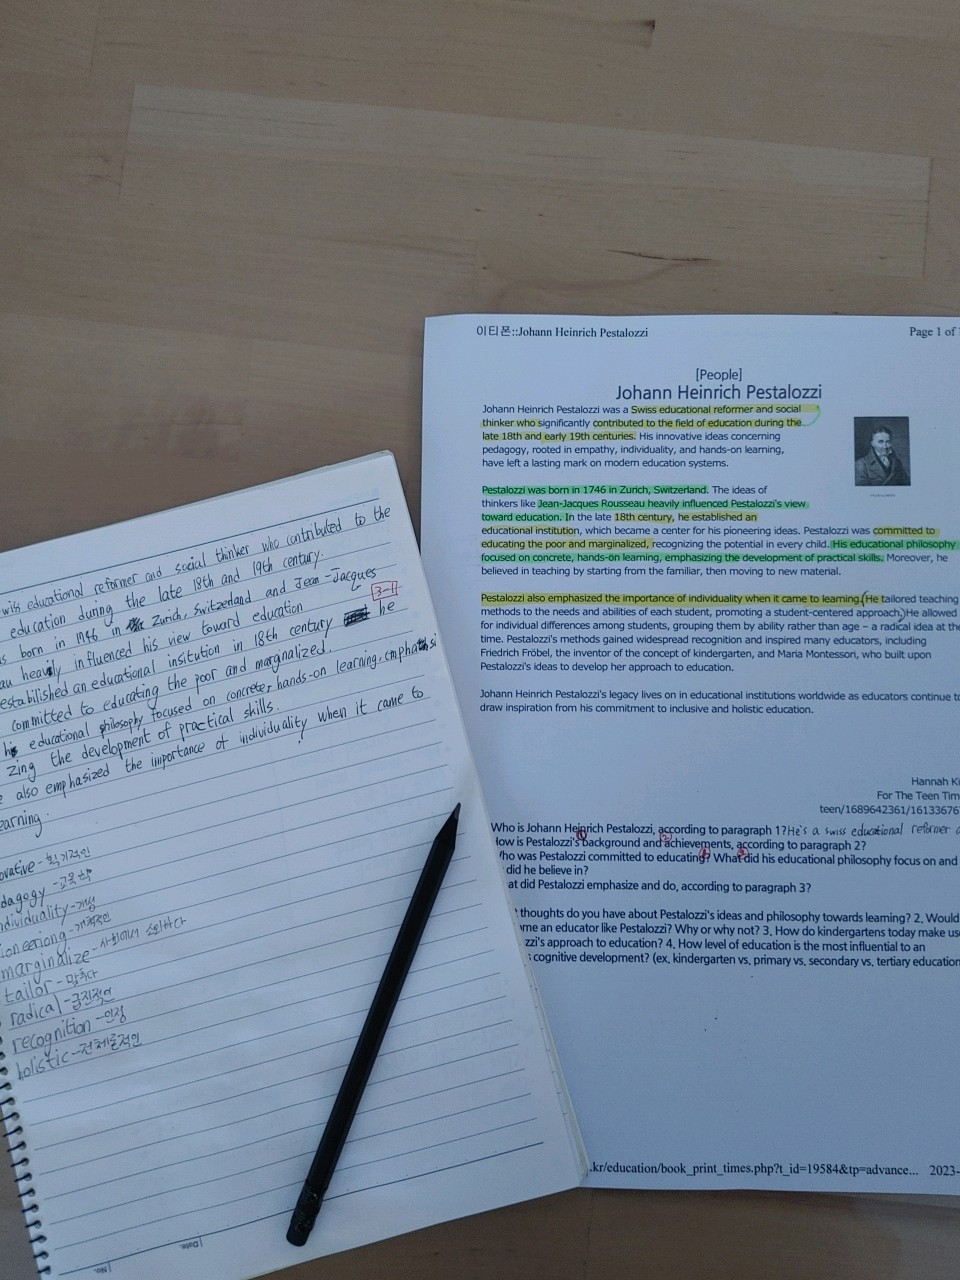 wiss educational reformer and social thinker who contributed to the
education during the late 18th and 19th century.
s born in 1746 in Zurich, Switzerland and Jean-Jacques
au heavily influenced his view toward education
3-11
established an educational insitution in 18th century he
committed to educating the poor and marginalized.
his educational philosophy focused on concrete, hands-on learning, emphasi
zing the development of practical skills.
e also emphasized the importance of individuality when it came to
earning.
ovative-획기적인
dagogy-교육학
ndividuality-개성
ioneering-개척적인
marginalize-사회에서 소외하다
tailor-맞추다
radical-급진적인
recognition-인정
holistic-전체론적인
Date.
No.
이티폰::Johann Heinrich Pestalozzi
Page 1 of
[People]
Johann Heinrich Pestalozzi
Johann Heinrich Pestalozzi was a Swiss educational reformer and social
thinker who significantly contributed to the field of education during the
late 18th and early 19th centuries. His innovative ideas concerning
pedagogy, rooted in empathy, individuality, and hands-on learning,
have left a lasting mark on modern education systems.
Pestalozzi was born in 1746 in Zurich, Switzerland. The ideas of
thinkers like Jean-Jacques Rousseau heavily influenced Pestalozzi's view
toward education. In the late 18th century, he established an
educational institution, which became a center for his pioneering ideas. Pestalozzi was committed to
educating the poor and marginalized, recognizing the potential in every child. His educational philosophy
focused on concrete, hands-on learning, emphasizing the development of practical skills. Moreover, he
believed in teaching by starting from the familiar, then moving to new material.
Pestalozzi also emphasized the importance of individuality when it came to learning. He tailored teaching
methods to the needs and abilities of each student, promoting a student-centered approach. He allowed
for individual differences among students, grouping them by ability rather than age – a radical idea at the
time. Pestalozzi's methods gained widespread recognition and inspired many educators, including
Friedrich Fröbel, the inventor of the concept of kindergarten, and Maria Montessori, who built upon
Pestalozzi's ideas to develop her approach to education.
Johann Heinrich Pestalozzi's legacy lives on in educational institutions worldwide as educators continue to
draw inspiration from his commitment to inclusive and holistic education.
Hannah Ki
For The Teen Tim
teen/1689642361/16133676
Who is Johann Heinrich Pestalozzi, according to paragraph 1? He's a swiss educational reformer a
How is Pestalozzi's background and achievements, according to paragraph 2?
Who was Pestalozzi committed to educating? What did his educational philosophy focus on and
did he believe in?
at did Pestalozzi emphasize and do, according to paragraph 3?
thoughts do you have about Pestalozzi's ideas and philosophy towards learning? 2. Would
me an educator like Pestalozzi? Why or why not? 3. How do kindergartens today make us
zzi's approach to education? 4. How level of education is the most influential to an
s cognitive development? (ex. kindergarten vs. primary vs. secondary vs. tertiary education
.kr/education/book_print_times.php?t_id=19584&tp=advance... 2023-